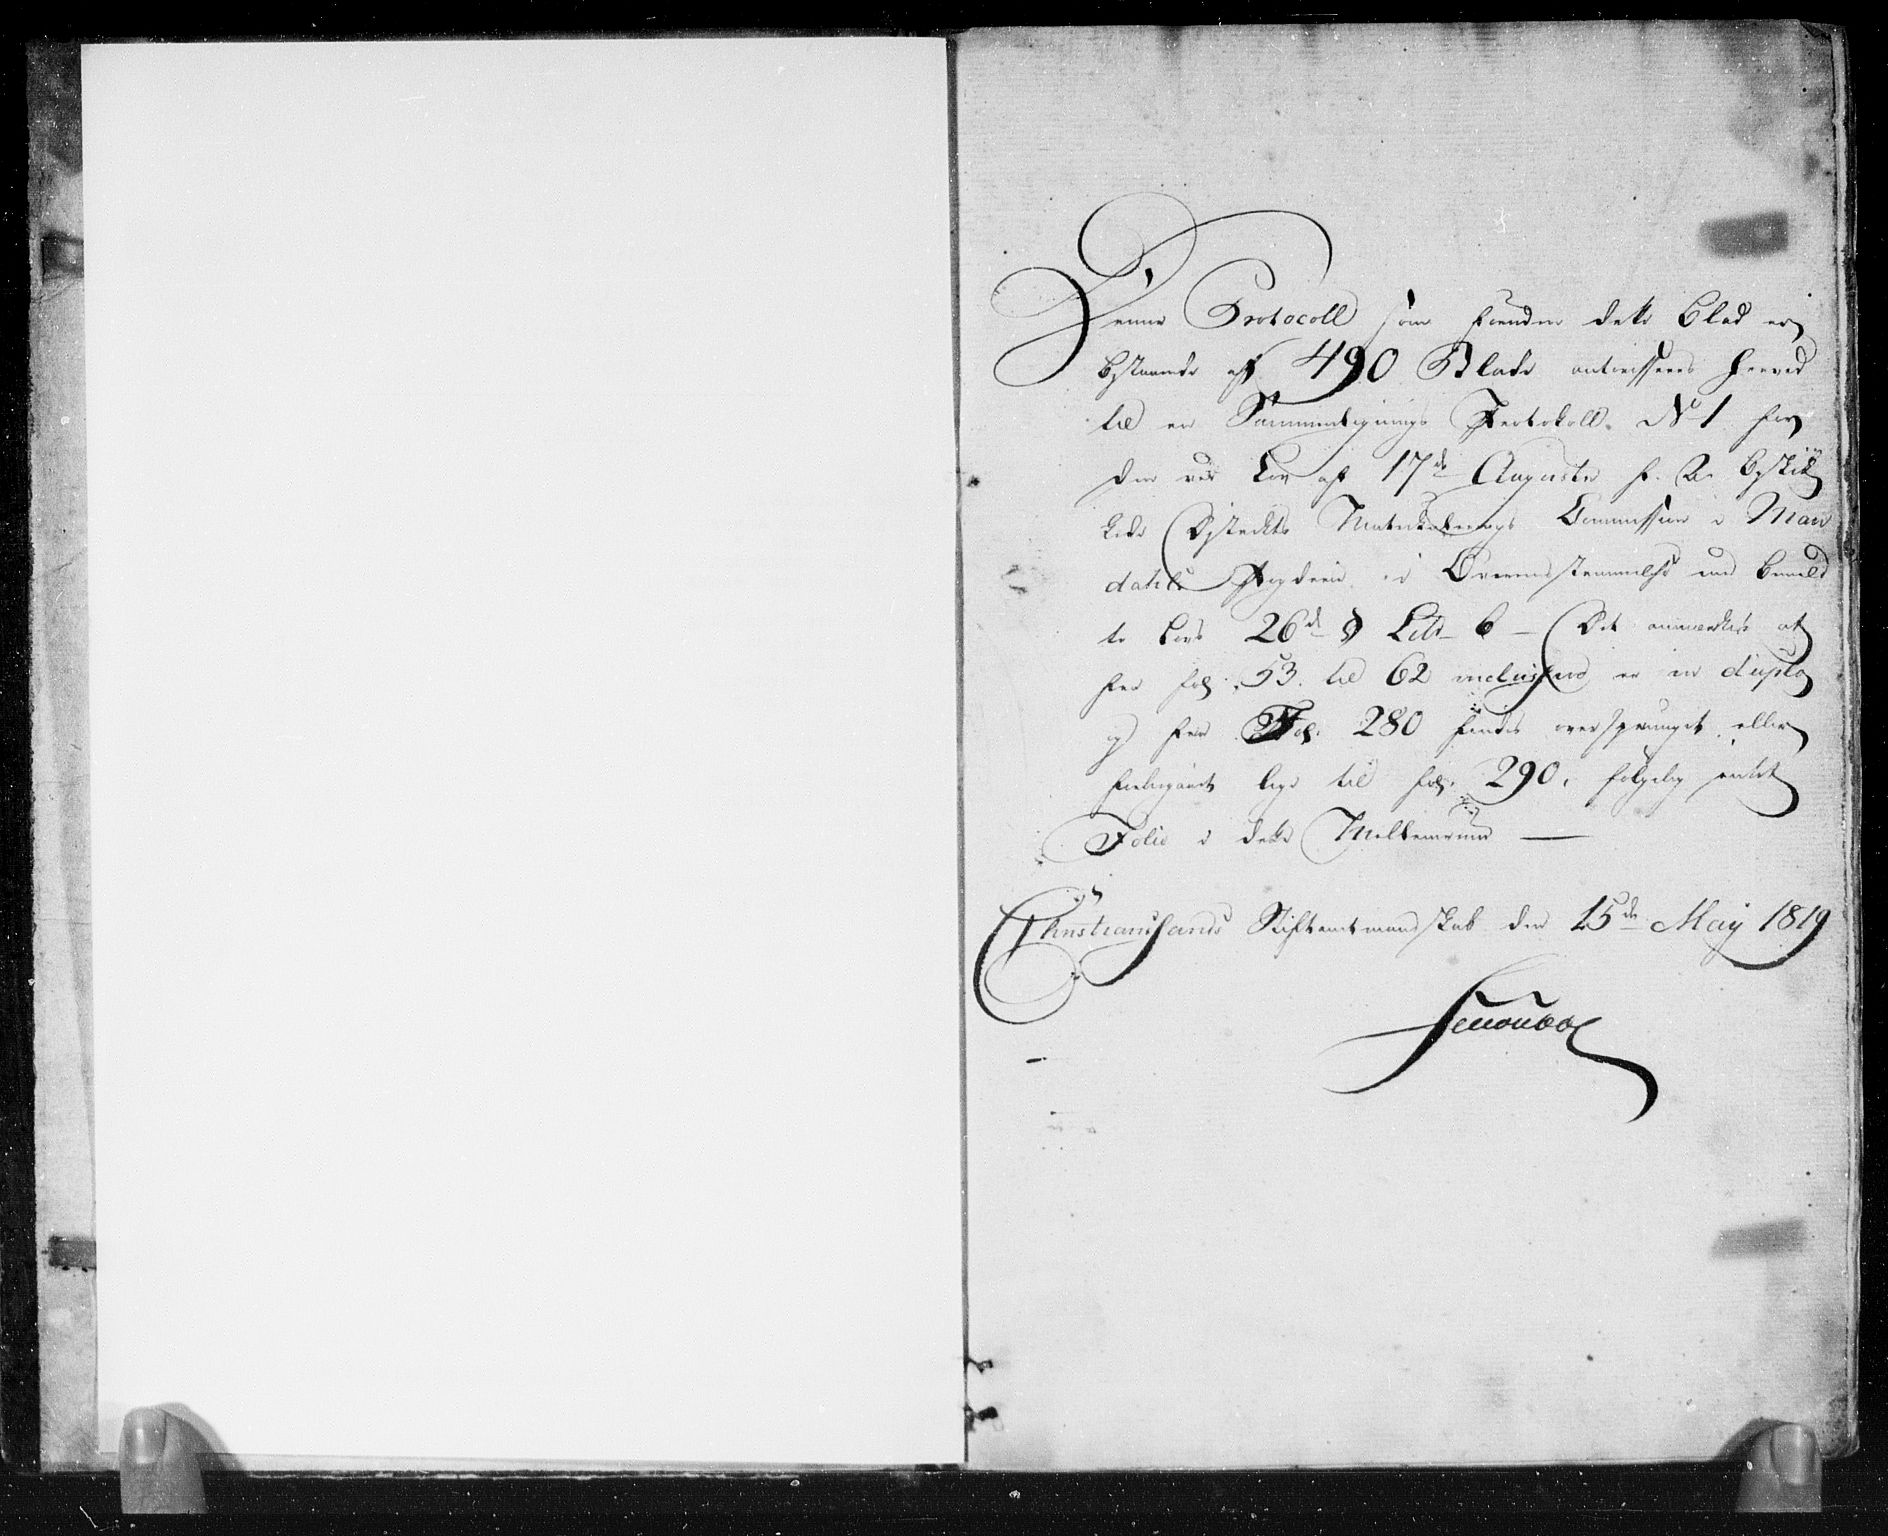 Denne Protocoll som foruden dette Blad er
bestaaende af 490 Blade autoriseres herved
til en Sammenlignings Protokoll No 1 for
den ved Lov af 17de Augusti f. A. beskik
kede Distrikts Matriculerings Commission i Man
dahls Fogderie i Overensstemmelse med bemeld
te Lovs 26de § Litr b – Det anmærkes at
her fol. 53 til 62 inclusive er in duplo
og her Fol. 280 findes oversprunget eller
forbigaaet lige til fol. 290, følgelig intet
Folio i dette Mellemrum —
Christiansands Stiftamtmandskab den 15de May 1819